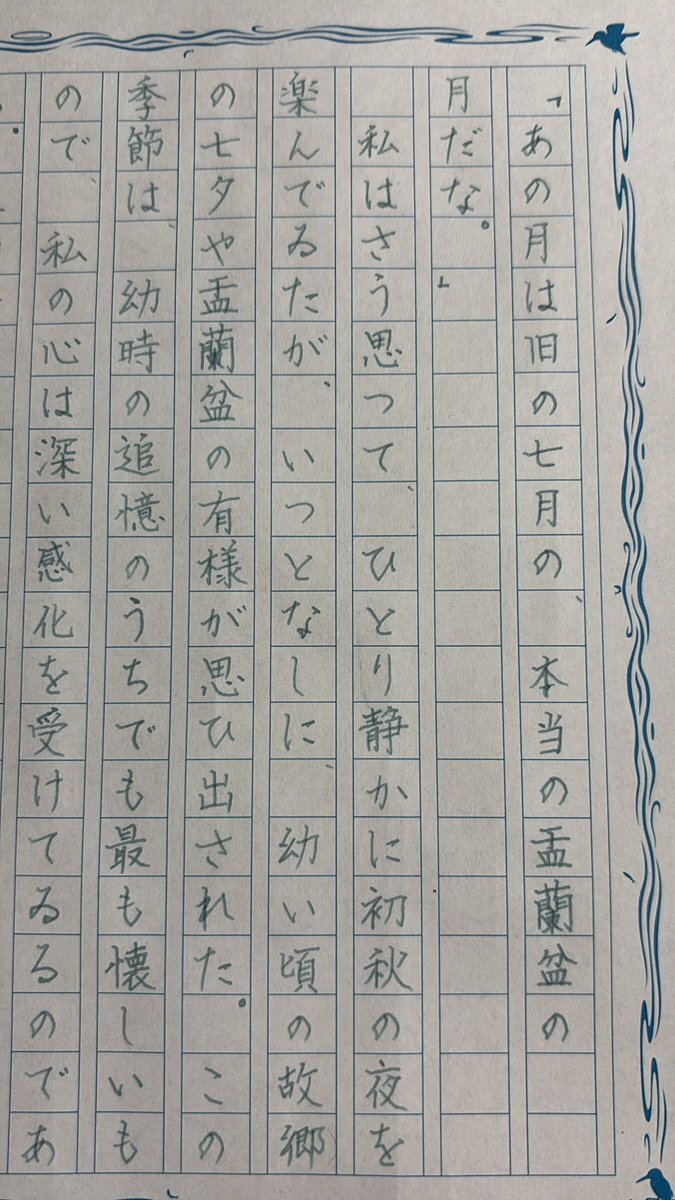 「あの月は旧の七月の、本当の盂蘭盆の
月だな。」
私はさう思つて、ひとり静かに初秋の夜を
楽んでゐたが、いつとなしに、幼い頃の故郷
の七夕や盂蘭盆の有様が思ひ出された。この
季節は、幼時の追憶のうちでも最も懐しいも
ので、私の心は深い感化を受けてゐるのであ